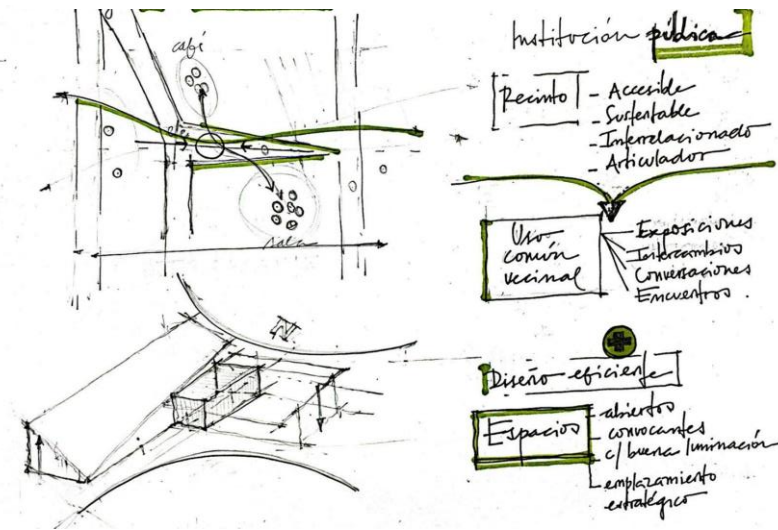 café
sala
Institución pública
Recinto
- Accesible
- Sustentable
- Interrelacionado
- Articulador
Uso
común
vecinal
Exposiciones
Intercambios
Conversaciones
Encuentros.
Diseño eficiente
Espacios
abiertos
convocantes
c/ buena luminación
emplazamiento
estratégico